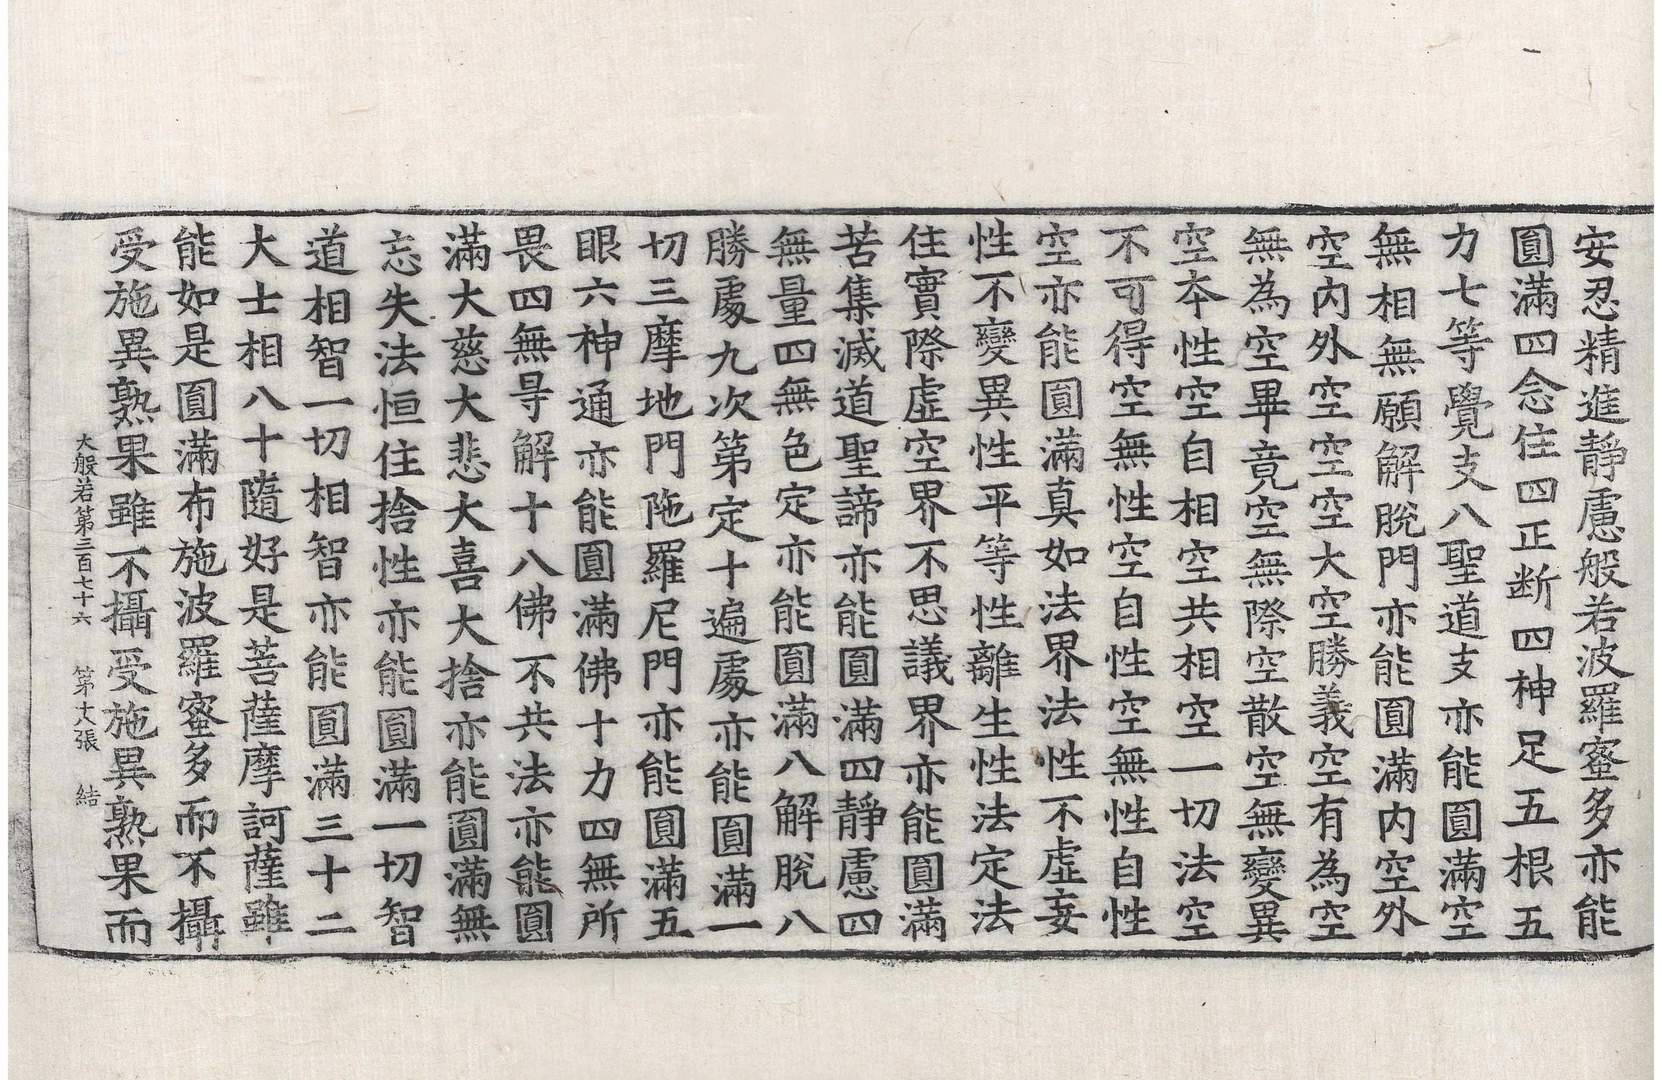 安忍精進靜慮般若波羅蜜多亦能
圓滿四念住四正断四神足五根五
力七等覺支八聖道支亦能圓滿空
無相無願解脫門亦能圓滿內空外
空內外空空空大空勝義空有為空
無為空畢竟空無際空散空無變異
空本性空自相空共相空一切法空
不可得空無性空自性空無性自性
空亦能圓滿真如法界法性不虛妄
性不變異性平等性離生性法定法
住實際虛空界不思議界亦能圓滿
苦集滅道聖諦亦能圓滿四靜慮四
無量四無色定亦能圓滿八解脫八
勝處九次第定十遍處亦能圓滿一
切三摩地門陁羅尼門亦能圓滿五
眼六神通亦能圓滿佛十力四無所
畏四無㝵解十八佛不共法亦能圓
滿大慈大悲大喜大捨亦能圓滿無
忘失法恒住捨性亦能圓滿一切智
道相智一切相智亦能圓滿三十二
大士相八十隨好是菩薩摩訶薩雖
能如是圓滿布施波羅蜜多而不攝
受施異熟果雖不攝受施異熟果而
大般若第三百七十六 第十六張 結